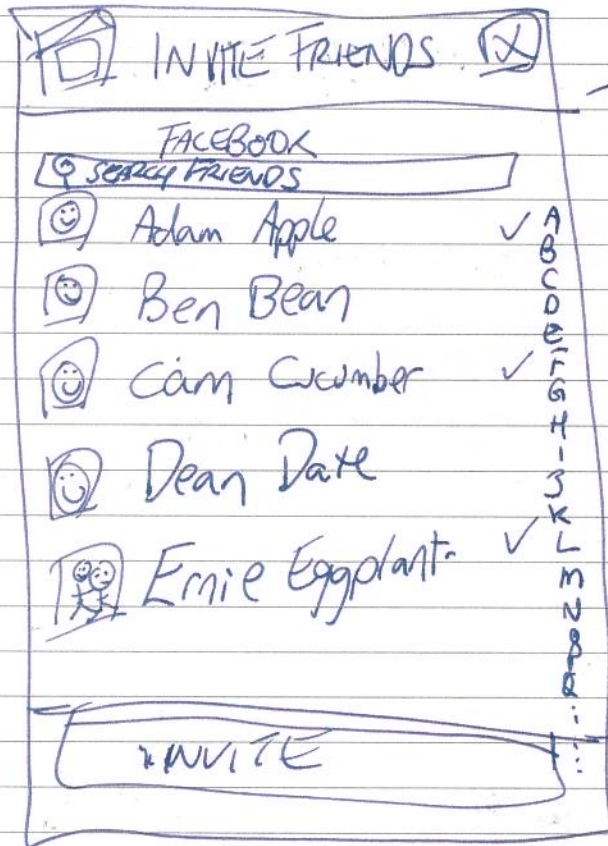 INVITE FRIENDS X
FACEBOOK
SEARCH FRIENDS
Adam Apple ✓
Ben Bean
Cam Cucumber ✓
Dean Date
Ernie Eggplant ✓
A
B
C
D
E
F
G
H
I
J
K
L
M
N
O
P
Q
INVITE